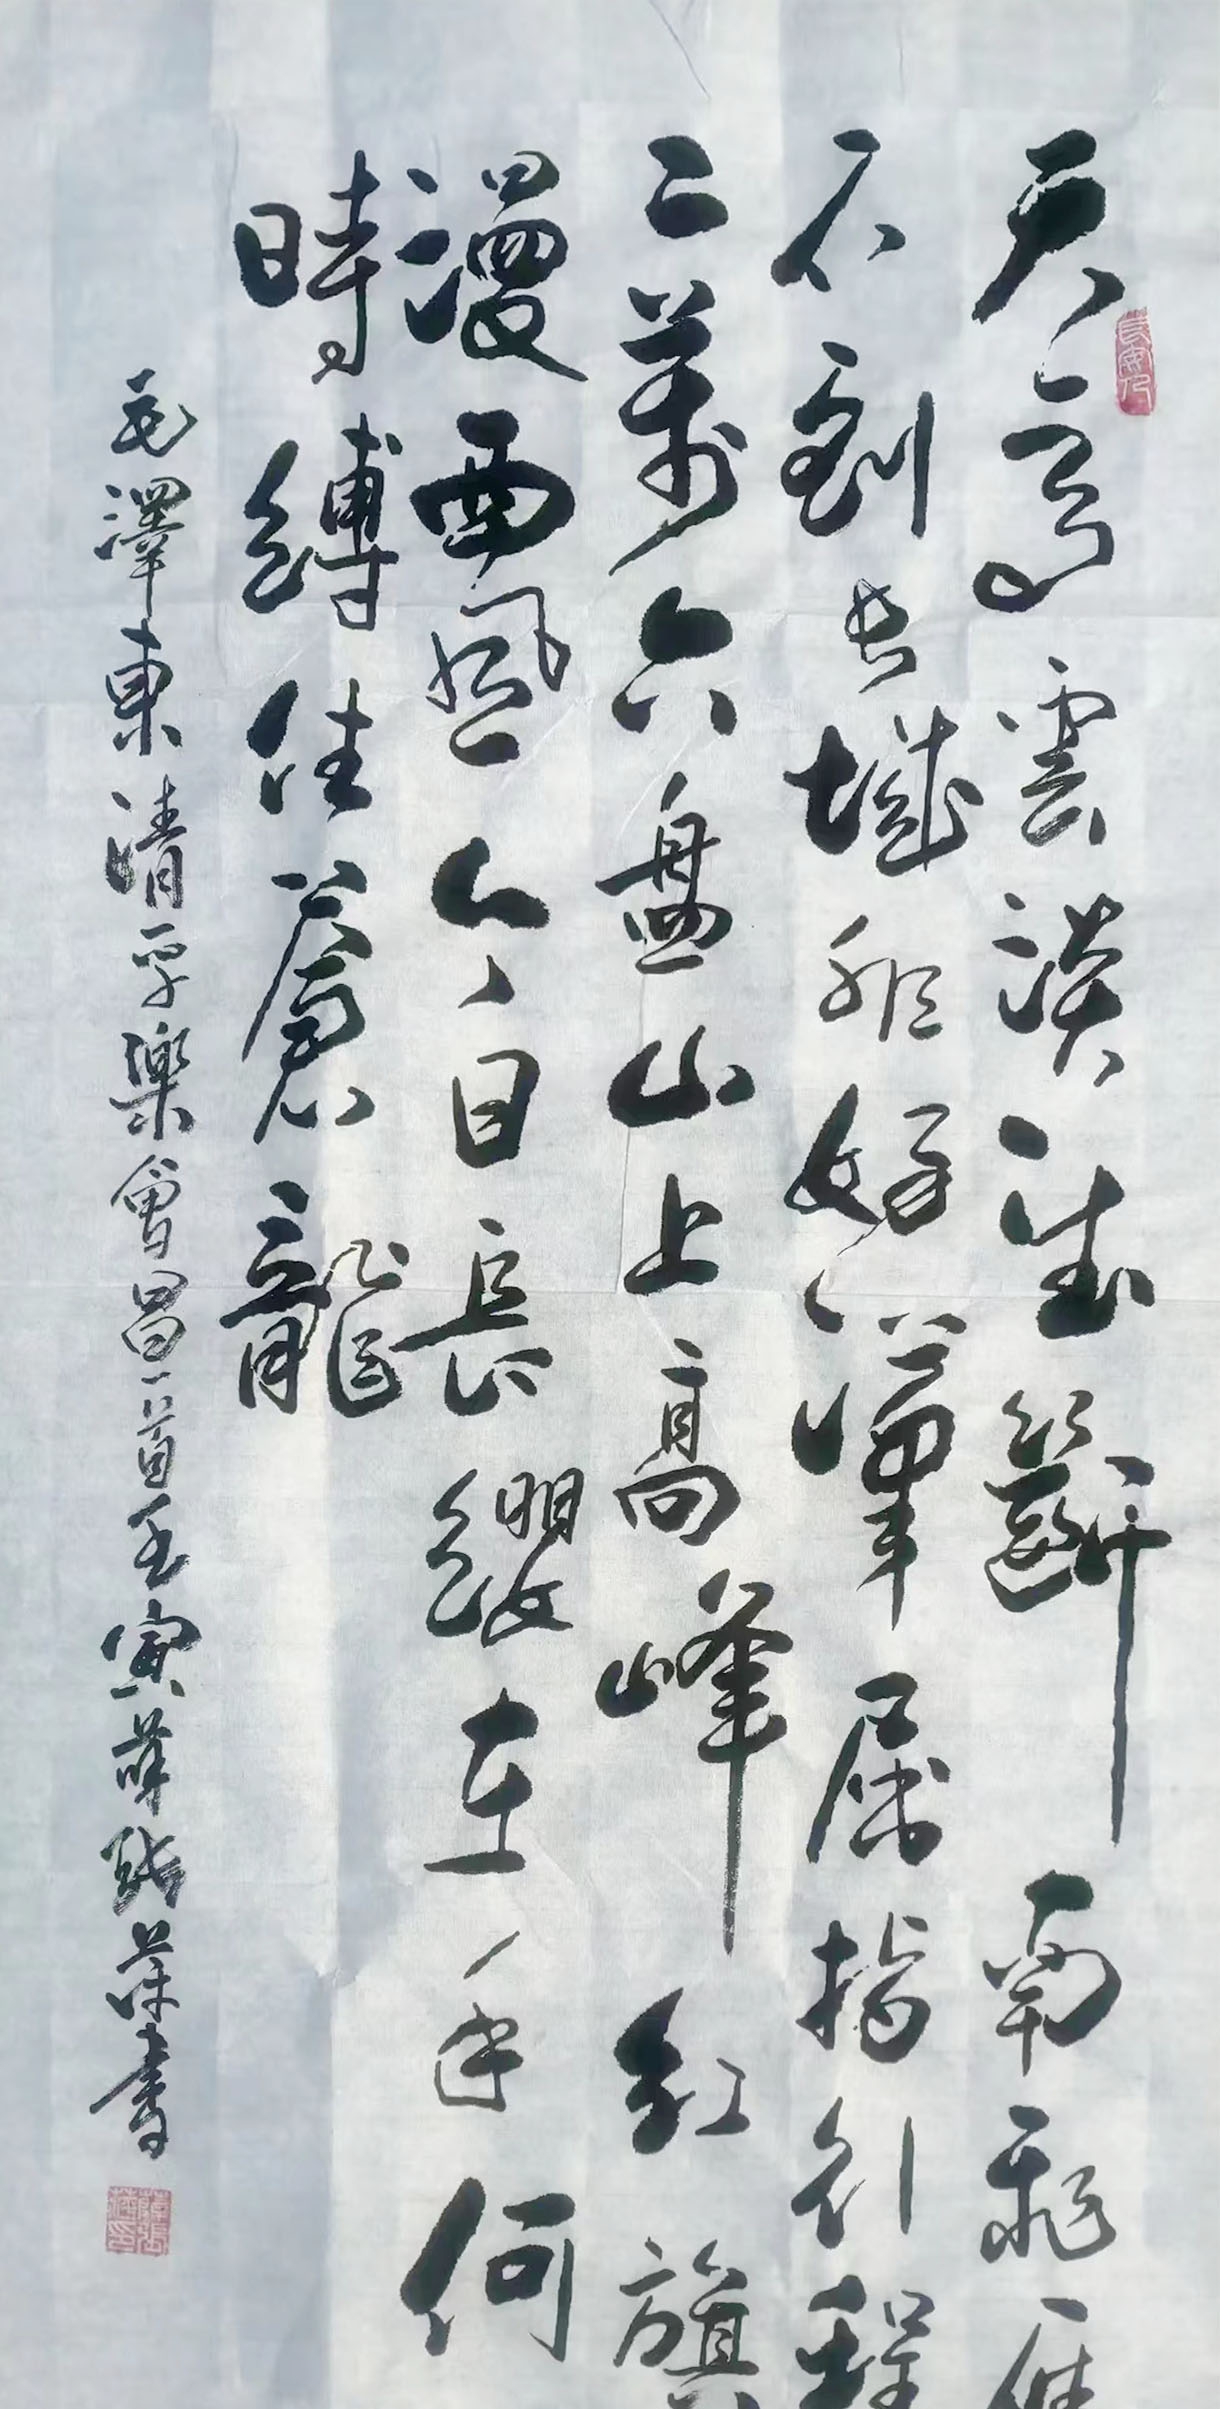 天高雲淡望斷南飛雁
不到長城非好漢屈指行程
二萬六盤山上高峰紅旗
漫西風今日長纓在手何
時縛住蒼龍
毛澤東清平樂會昌一首壬寅薛張葆書
長安人